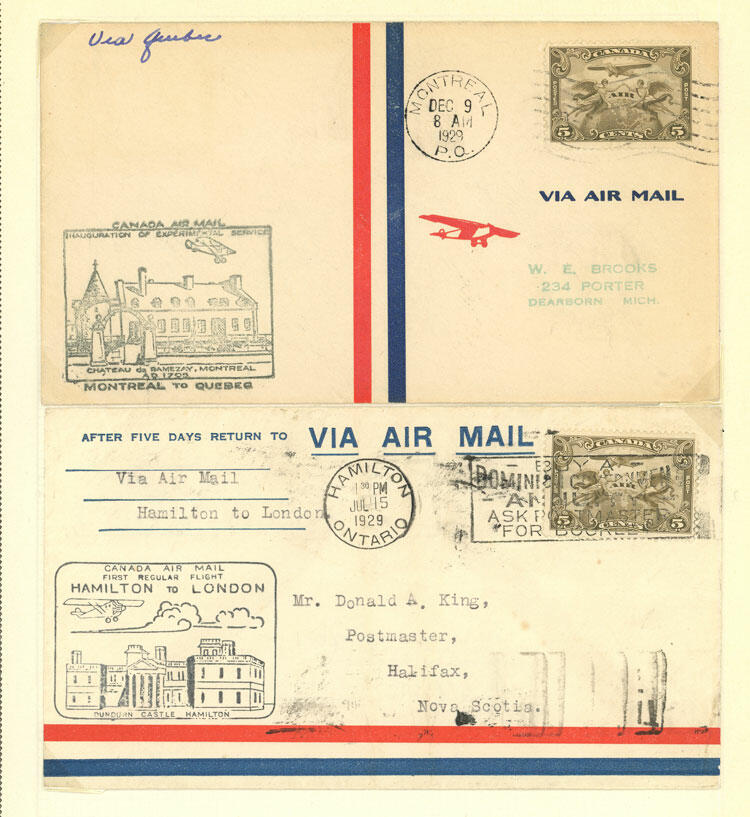 Via Quebec
MONTREAL
DEC 9
8 AM
1929
P.Q.
CANADA
POSTES POST
AIR
5 CENTS 5
VIA AIR MAIL
W. E. BROOKS
234 PORTER
DEARBORN MICH.
CANADA AIR MAIL
INAUGURATION OF EXPERIMENTAL SERVICE
CHATEAU de RAMEZAY, MONTREAL
A.D. 1705
MONTREAL TO QUEBEC
AFTER FIVE DAYS RETURN TO
VIA AIR MAIL
Via Air Mail
Hamilton to London
HAMILTON
1 30 PM
JUL 15
1929
ONTARIO
CANADA
5 CENTS 5
A
DOMINION
ASK POSTMASTER
FOR BOOKLET
CANADA AIR MAIL
FIRST REGULAR FLIGHT
HAMILTON TO LONDON
DUNDURN CASTLE HAMILTON
Mr. Donald A. King,
Postmaster,
Halifax,
Nova Scotia.